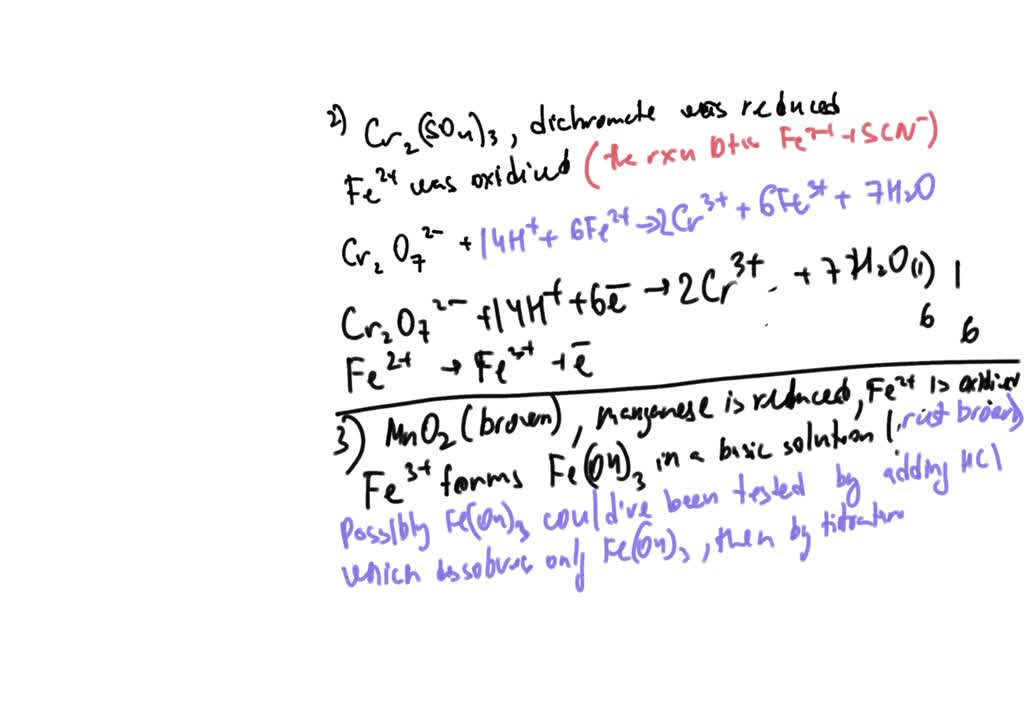 2) Cr₂(SO₄)₃, dichromate was reduced
Fe²⁺ was oxidized (the rxn btw Fe³⁺ + SCN⁻)
Cr₂O₇²⁻ + 14H⁺ + 6Fe²⁺ → 2Cr³⁺ + 6Fe³⁺ + 7H₂O
Cr₂O₇²⁻ + 14H⁺ + 6e̅ → 2Cr³⁺ + 7H₂O(l) | 1
6 6
Fe²⁺ → Fe³⁺ + e̅
3) MnO₂ (brown), manganese is reduced, Fe²⁺ is oxidized
Fe³⁺ forms Fe(OH)₃ in a basic solution (rust brown)
Possibly Fe(OH)₃ could've been tested by adding HCl
which dissolves only Fe(OH)₃, then by titration